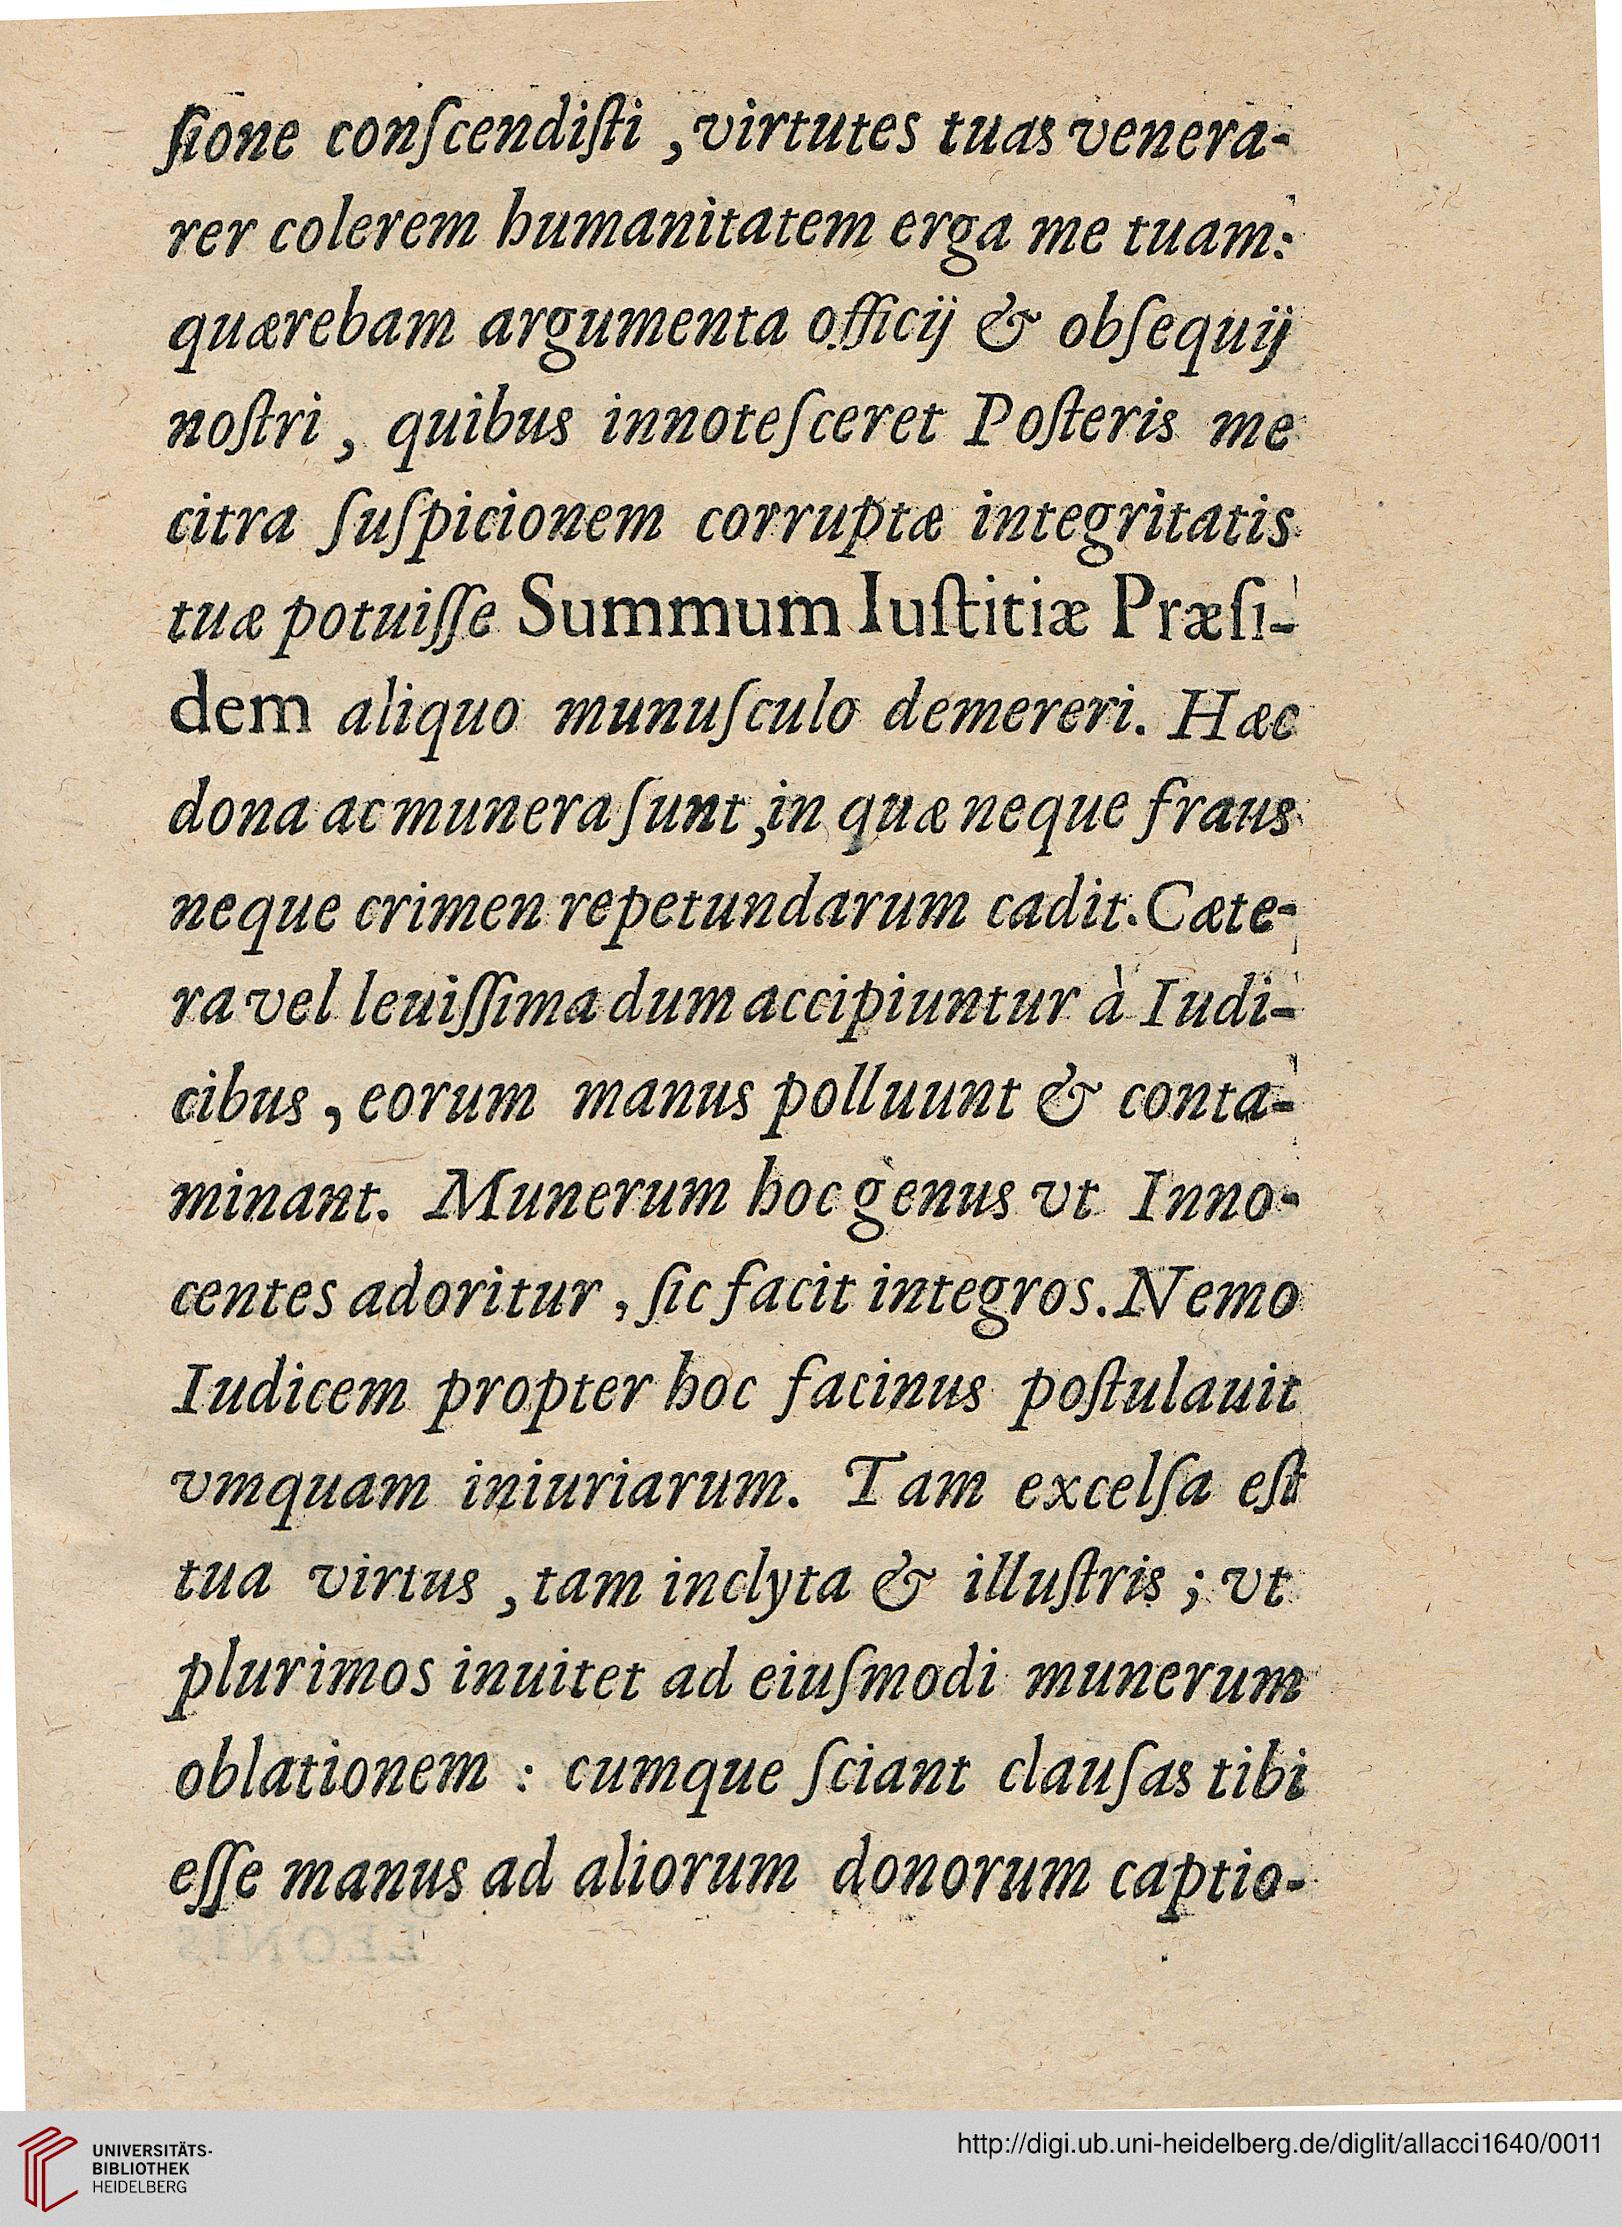 ſione conſcendiſti, virtutes tuas venera-
rer colerem humanitatem erga me tuam:
quærebam argumenta officij & obſequij
noſtri, quibus innoteſceret Poſteris me
citra ſuſpicionem corruptæ integritatis
tuæ potuiſſe Summum Iuſtitiæ Præſi-
dem aliquo munuſculo demereri. Hæc
dona ac munera ſunt, in quæ neque fraus
neque crimen repetundarum cadit. Cæte-
ra vel leuiſſima dum accipiuntur à Iudi-
cibus, eorum manus polluunt & conta-
minant. Munerum hoc genus vt Inno-
centes adoritur, ſic facit integros. Nemo
Iudicem propter hoc facinus poſtulauit
vmquam iniuriarum. Tam excelſa eſt
tua virtus, tam inclyta & illuſtris; vt
plurimos inuitet ad eiuſmodi munerum
oblationem: cumque ſciant clauſas tibi
eſſe manus ad aliorum donorum captio-
UNIVERSITÄTS-
BIBLIOTHEK
HEIDELBERG
http://digi.ub.uni-heidelberg.de/diglit/allacci1640/0011